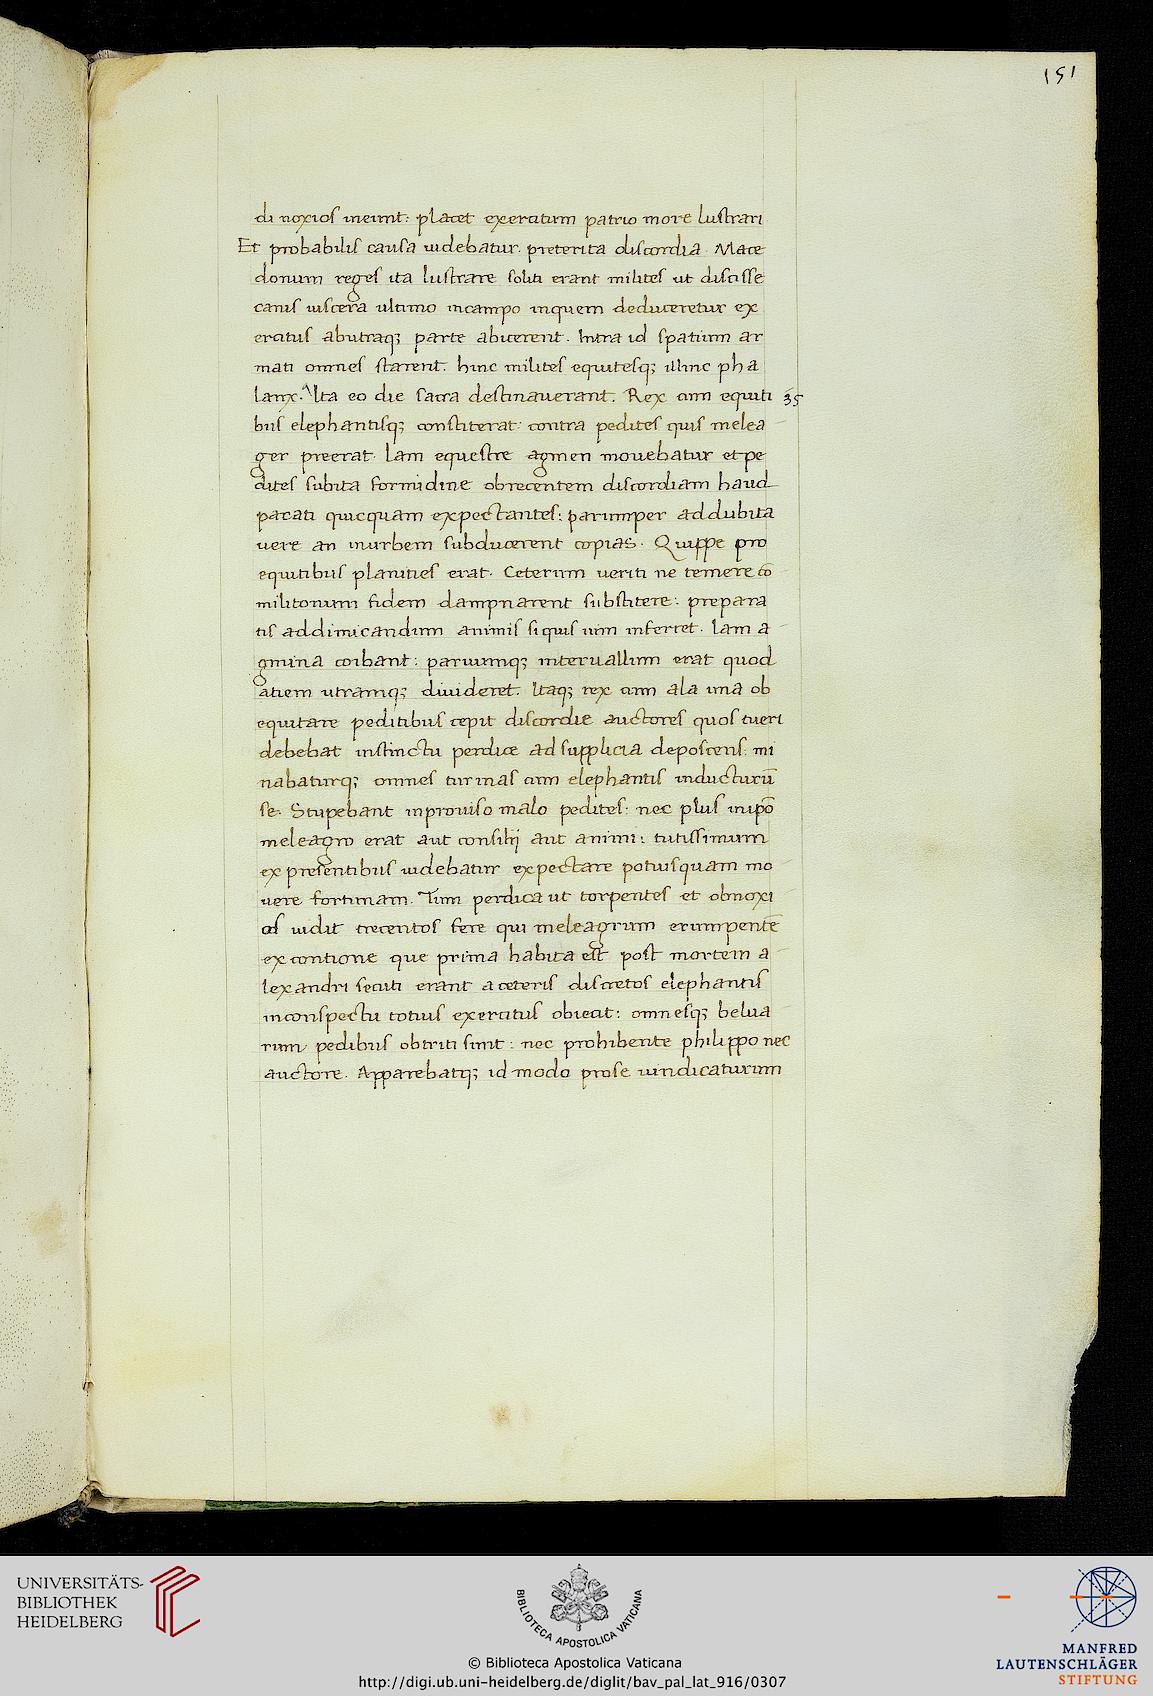 151
di noxios ineunt: placet exercitum patrio more lustrari
Et probabilis causa uidebatur. preterita discordia. Mace
donum reges ita lustrare soliti erant milites ut discisse
canis uiscera ultimo incampo inquem deduceretur ex
ercitus abutraq; parte abicerent. Intra id spatium ar
mati omnes starent. hinc milites equitesq; illinc pha
lanx. Ita eo die sacra destinauerant. Rex cum equiti 35
bus elephantisq; constiterat: contra pedites quis melea
ger preerat. Iam equestre agmen mouebatur et pe
dites subita formidine obrecentem discordiam haud
pacati quicquam expectantes: parumper addubita
uere an inurbem subducerent copias. Quippe pro
equitibus planities erat. Ceterum ueriti ne temere cō
militonum fidem dampnarent substitere: prepara
tis addimicandum animis siquis uim inferret. Iam a
gmina coibant: paruumq; interuallum erat quod
aciem utramq; diuideret. Itaq; rex cum ala una ob
equitare peditibus cepit discordie auctores quos tueri
debebat instinctu perdice ad supplicia deposcens: mi
nabaturq; omnes turmas cum elephantis inducturū
se. Stupebant inprouiso malo pedites: nec plus inipō
meleagro erat aut consilij aut animi: tutissimum
expresentibus uidebatur expectare potiusquam mo
uere fortunam. Tum perdica ut torpentes et obnoxi
os uidit trecentos fere qui meleagrum erumpentē
excontione que prima habita est post mortem a
lexandri secuti erant aceteris discretos elephantis
inconspectu totius exercitus obiecit: omnesq; belua
rum pedibus obtriti sunt: nec prohibente philippo nec
auctore. Apparebatq; id modo prose uindicaturum
UNIVERSITÄTS-
BIBLIOTHEK
HEIDELBERG
BIBLIOTECA APOSTOLICA VATICANA
© Biblioteca Apostolica Vaticana
http://digi.ub.uni-heidelberg.de/diglit/bav_pal_lat_916/0307
MANFRED
LAUTENSCHLÄGER
STIFTUNG